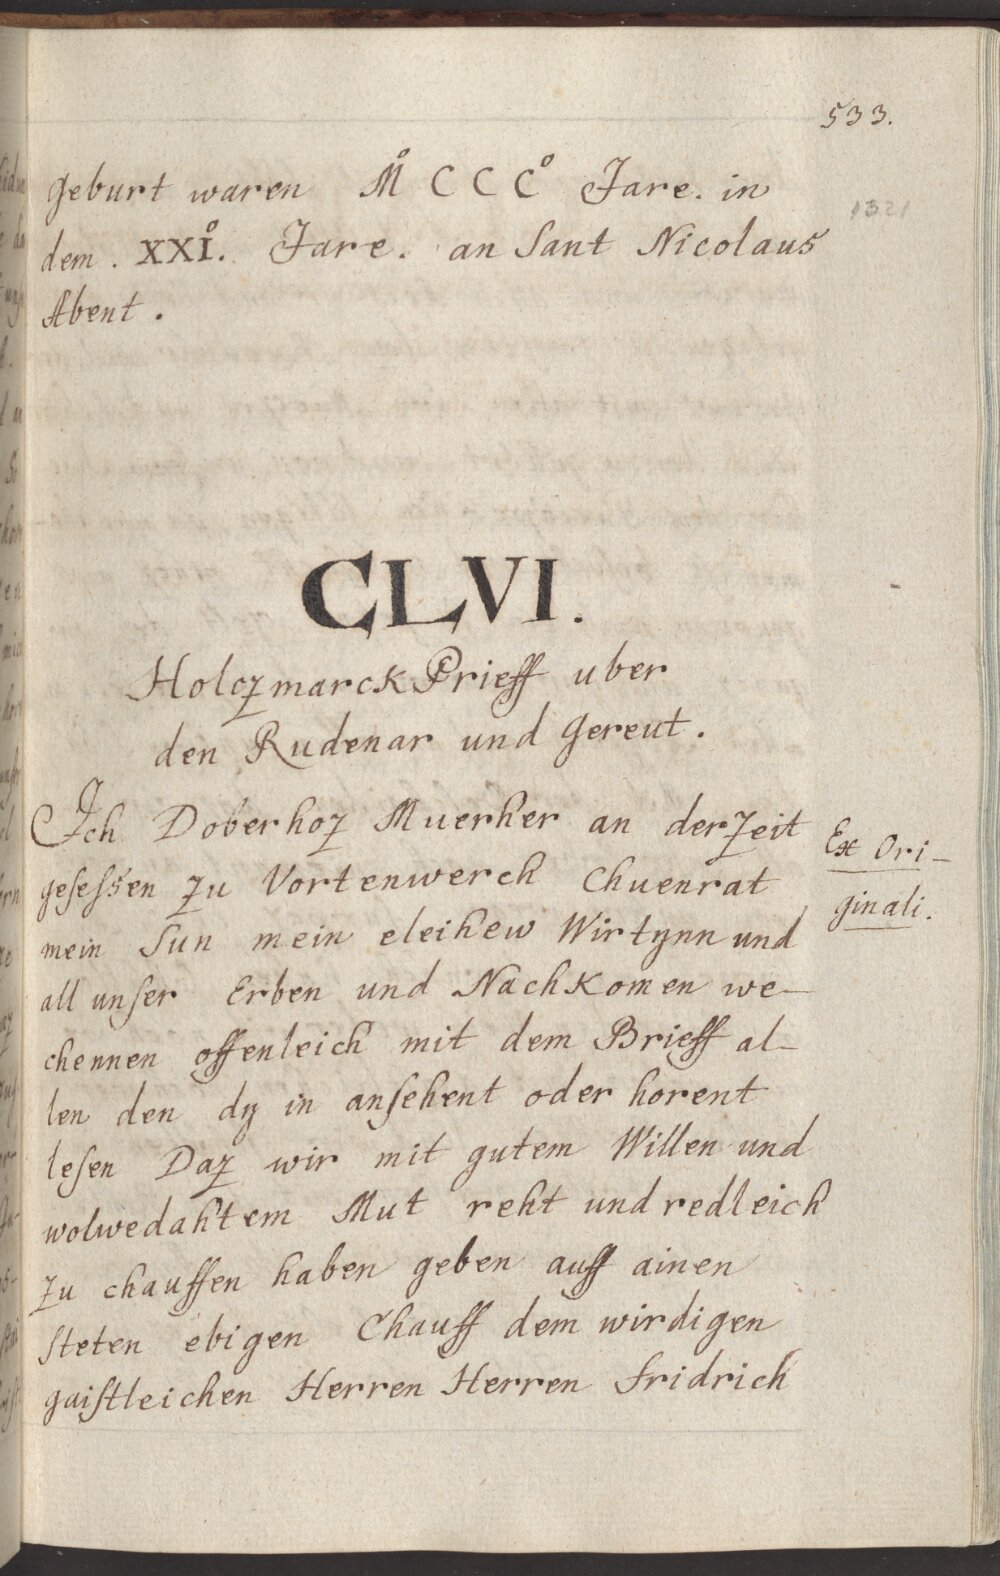 533.
Geburt waren M̊ C C C̊ Jare. in
1321
dem . XXI̊. Jare. an Sant Nicolaus
Abent .
CLVI.
Holczmarck Prieff uber
den Rudenar und Gereut .
Ich Doberhoz Muerher an der Zeit
Ex Ori-
gesessen zu Vortenwerch Chuenrat
ginali.
mein Sun mein eleihew Wirtynn und
all unser Erben und Nachkomen we-
chennen offenleich mit dem Brieff al-
len den dy in ansehent oder horent
lesen Daz wir mit gutem Willen und
wolwedahtem Mut reht und redleich
zu chauffen haben geben auff ainen
steten ebigen Chauff dem wirdigen
gaistleichen Herren Herren Fridrich